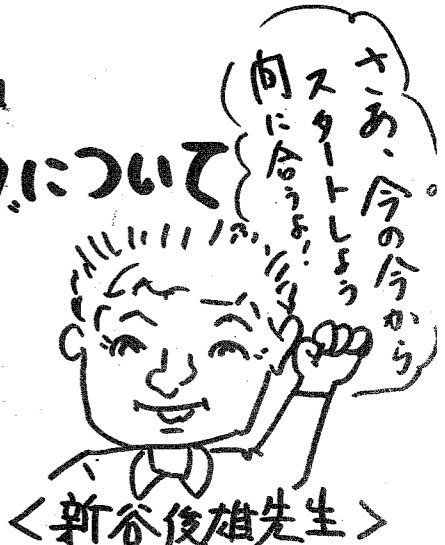 について
さあ、今の今から
スタートしよう
間に合うよ！
＜新谷俊雄先生＞